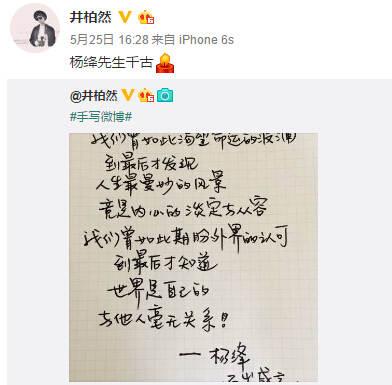 井柏然
5月25日 16:28 来自 iPhone 6s
杨绛先生千古
@井柏然
#手写微博#
我们曾如此渴望命运的波澜
到最后才发现
人生最曼妙的风景
竟是内心的淡定与从容
我们曾如此期盼外界的认可
到最后才知道
世界是自己的
与他人毫无关系!
一杨绛